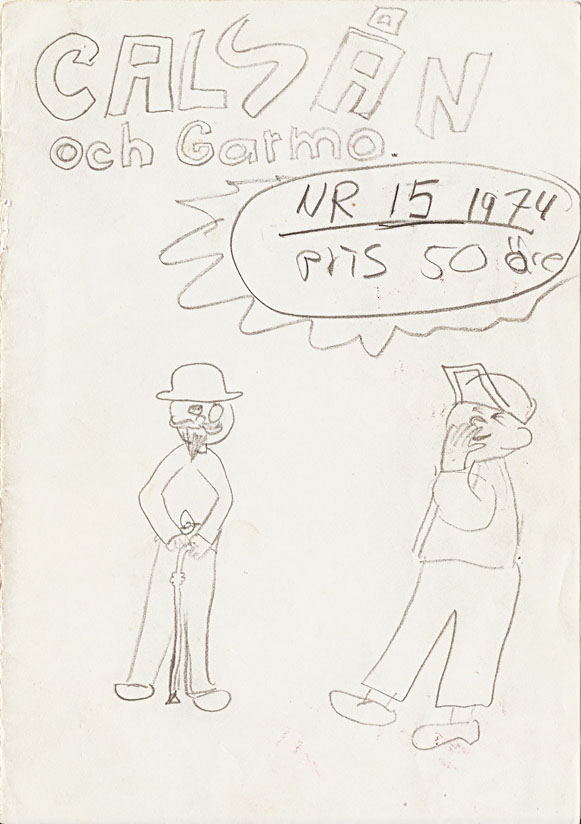 CALSÅN
och Garmo.
NR 15 1974
pris 50 öre